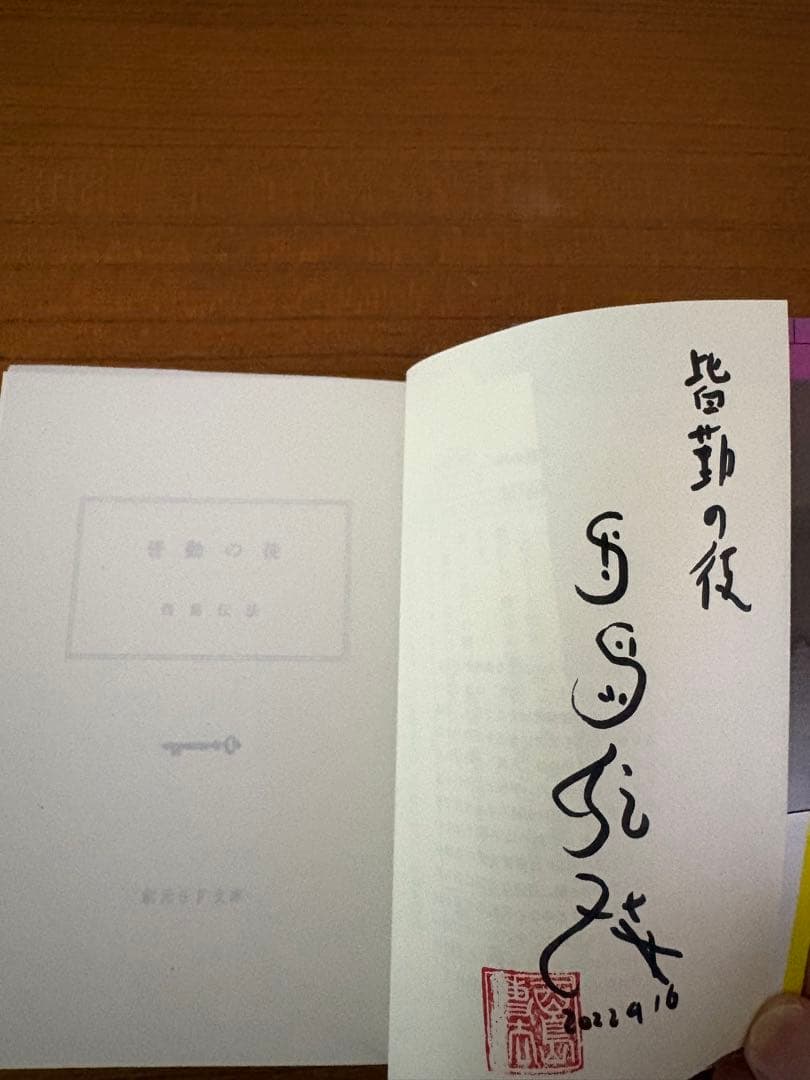 皆勤の徒
酉島伝法
2022 9 16
皆勤の徒
酉島伝法
創元SF文庫